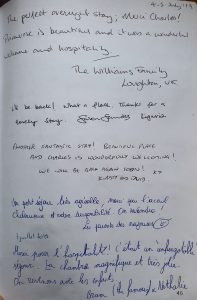 4-5 July '19
The perfect overnight stay; Merci Charles!
Plumerie is beautiful and it was a wonderful
welcome and hospitality
The Williams Family
Loughton, UK
We be back! What a place. Thanks for a
lovely stay.
ANOTHER FANTASTIC STAY! BEAUTIFUL PLACE
AND CHARLES IS WONDERFULLY WELCOMING!
WE WILL BE BACK AGAIN SOON! XX
Un petit séjour très agréable, merci pour l'accueil
chaleureux et votre disponibilité. On reviendra
7 juillet 2019
Merci pour l'hospitalité! C'était un inoubliable
séjour. La chambre magnifique et très jolie.
On reviendra avec les enfants